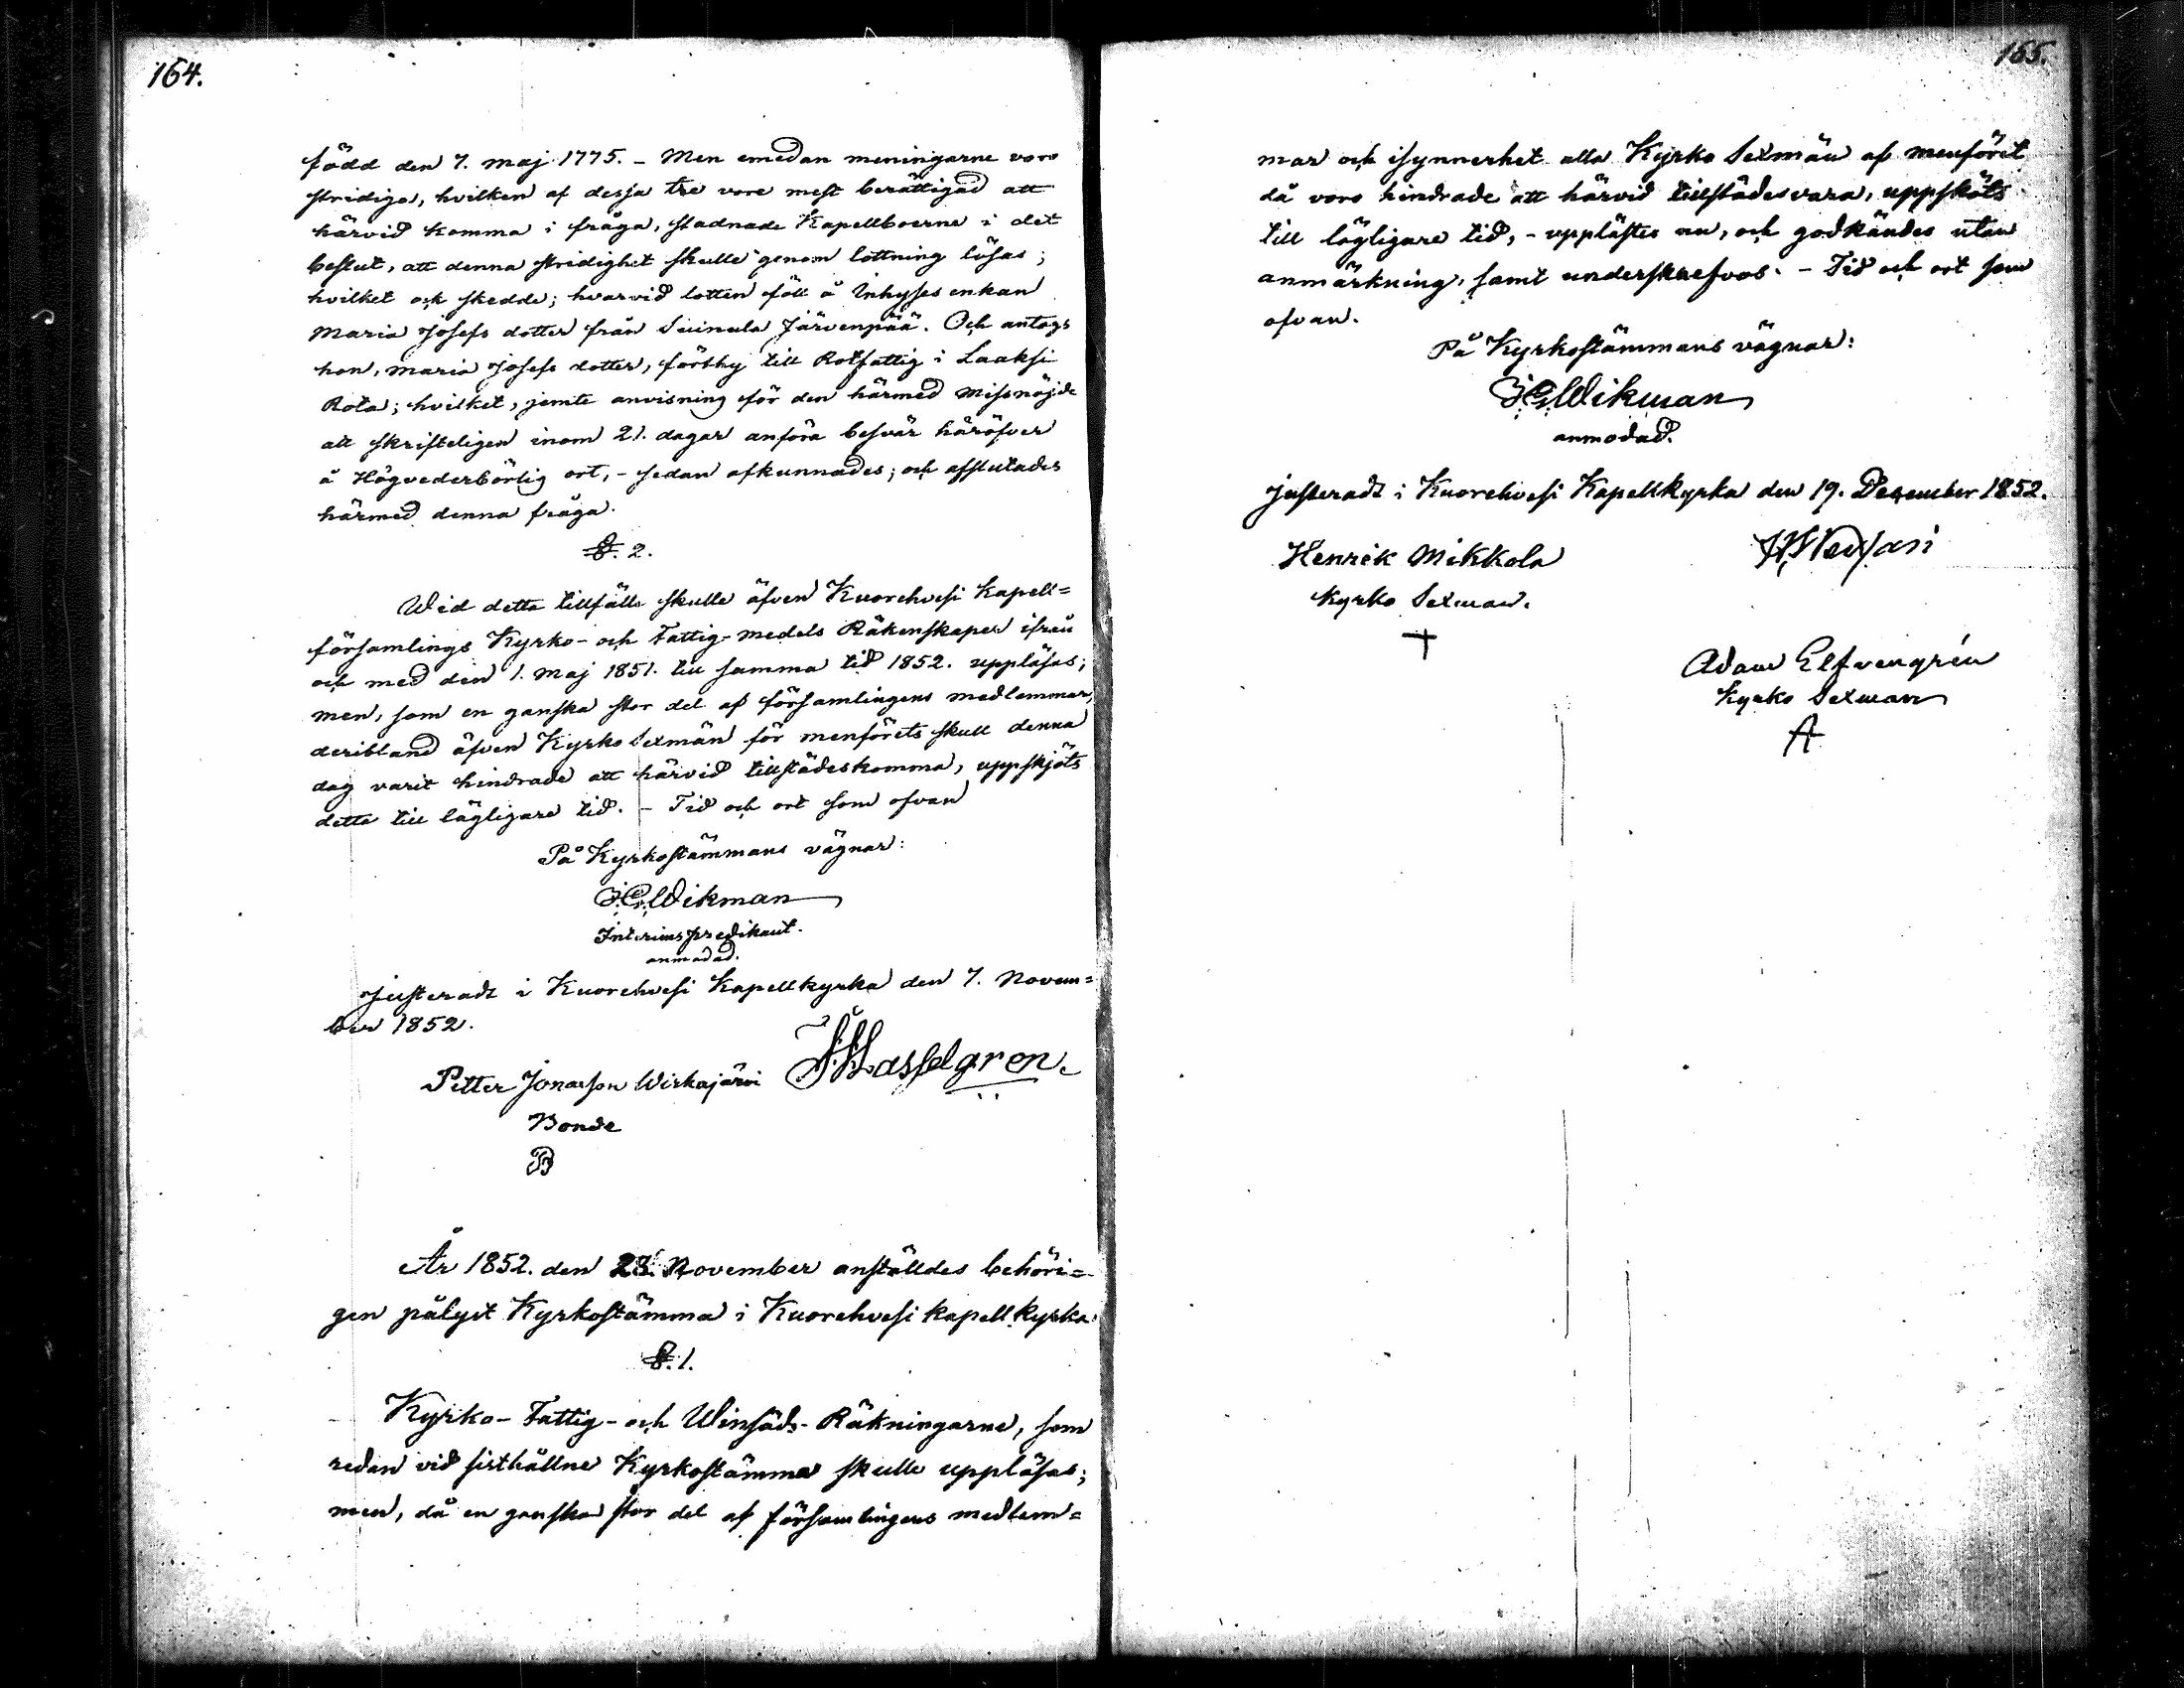 164.
född den 7. maj 1775. - Men emedan meningarne voro
stridiga, hvilken af dessa tre vore mest berättigad att
härvid komma i fråga, stadnade Kapellboerne i det
beslut, att denna stridighet skulle genom lottning lösas;
hvilket ock skedde; hvarvid lotten föll å Inhyses enkan
Maria Josefs dotter från Suinula Järvenpää. Och antogs
hon, Maria Josefs dotter, förthy till Rotfattig i Laaksi
Rota; hvilket, jemte anvisning för den härmed missnöjde
att skrifteligen inom 21. dagar anföra besvär häröfver
å Högvederbörlig ort, - sedan afkunnades; och afslutades
härmed denna fråga.
§. 2.
Wid detta tillfälle skulle äfven Kuorehvesi Kapell=
församlings Kyrko- och Fattig-medels Räkenskaper ifrån
och med den 1. Maj 1851. till samma tid 1852. uppläsas;
men, som en ganska stor del af församlingens medlemmar,
deribland äfven Kyrko Sexmän för menförets skull denna
dag varit hindrade att härvid tillstädeskomma, uppskjöts
detta till lägligare tid. - Tid och ort som ofvan
På Kyrkostämmans vägnar:
Wikman
Interimspredikant.
anmodad.
Justeradt i Kuorehvesi Kapellkyrka den 7. Novem=
ber 1852.
Petter Jonasson Wirkajärvi Hasselgren.
Bonde
År 1852. den 28. November anställdes behöri=
gen pålyst Kyrkostämma i Kuorehvesi kapell kyrka.
§. 1.
Kyrko- Fattig- och Winsäds- Räkningarne, som
redan vid sisthållne Kyrkostämma skulle uppläsas;
men, då en ganska stor del af församlingens medlem=
165.
mar och isynnerhet alla Kyrko Sexmän af menföret
då voro hindrade att härvid tillstädesvara, uppsköts
till lägligare tid, - upplästes nu, och godkändes utan
anmärkning, samt underskrefvos. - Tid och ort som
ofvan.
På Kyrkostämmans vägnar:
Wikman
anmodad.
Justeradt i Kuorehvesi Kapellkyrka den 19. December 1852.
Henrik Mikkola
Kyrko Sexman.
Adam Elfvengrén
Kyrko Sexman
A